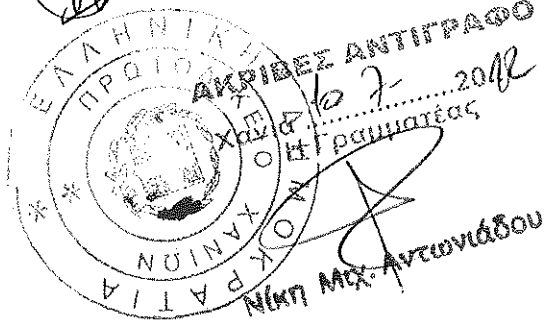 ΕΛΛΗΝΙΚΗ ΔΗΜΟΚΡΑΤΙΑ
ΠΡΩΤΟΔΙΚΕΙΟ ΧΑΝΙΩΝ
ΑΚΡΙΒΕΣ ΑΝΤΙΓΡΑΦΟ
Χανιά 10 7- 2012
Η Γραμματέας
Νίκη Μιχ. Αντωνιάδου